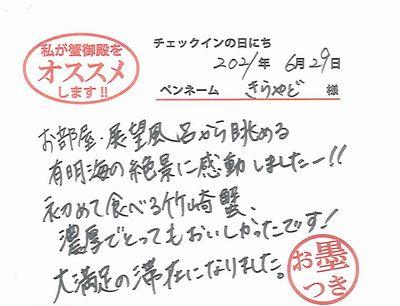 私が蟹御殿を
オススメ
します!!
チェックインの日にち
2021年 6月29日
ペンネーム きらやど 様
お部屋・展望風呂から眺める
有明海の絶景に感動しましたー!!
初めて食べる竹崎蟹、
濃厚でとってもおいしかったです!
大満足の滞在になりました。
お墨
つき